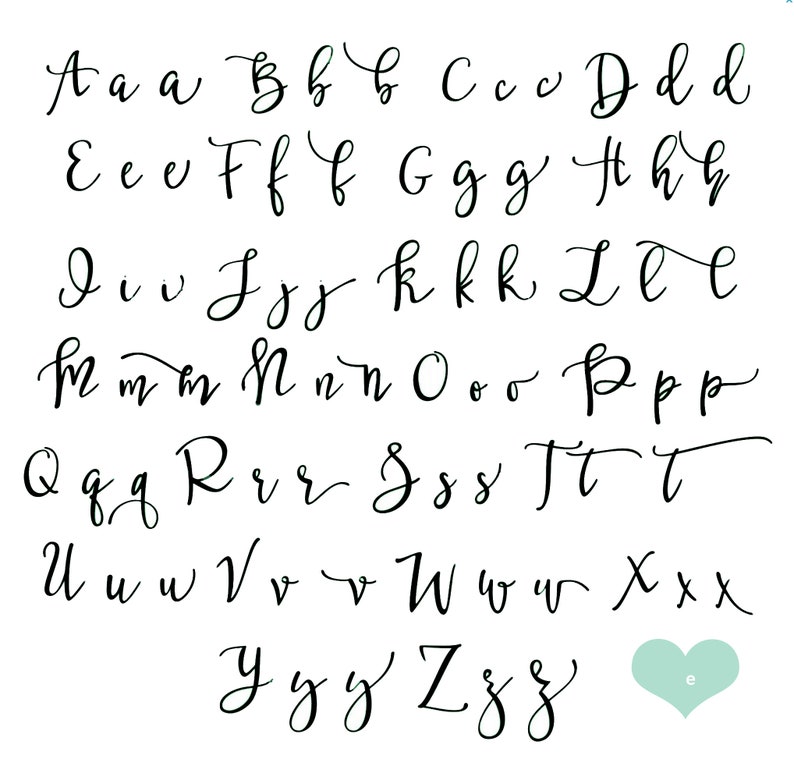 A a a B b b C c c D d d
E e e F f f G g g H h h
I i i J j j K k k L l l
M m m N n n O o o P p p
Q q q R r r S s s T t t
U u u V v v W w w X x x
Y y y Z z z e